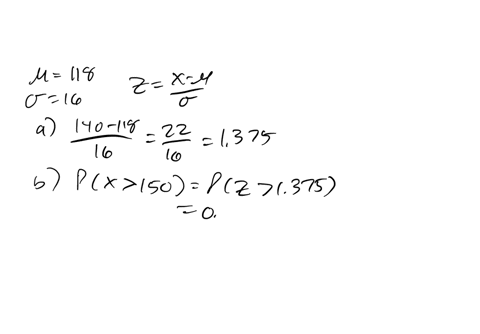 μ = 118
σ = 16
z = (x-μ)/σ
a) (140-118)/16 = 22/16 = 1.375
b) P(x > 150) = P(z > 1.375)
= 0.